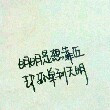 明明是想靠近
却孤单到天明